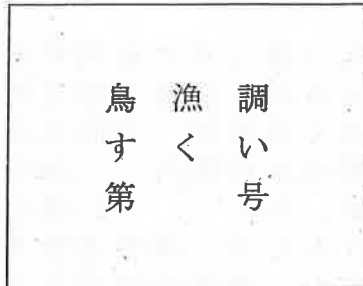 調い号
漁く
鳥す第